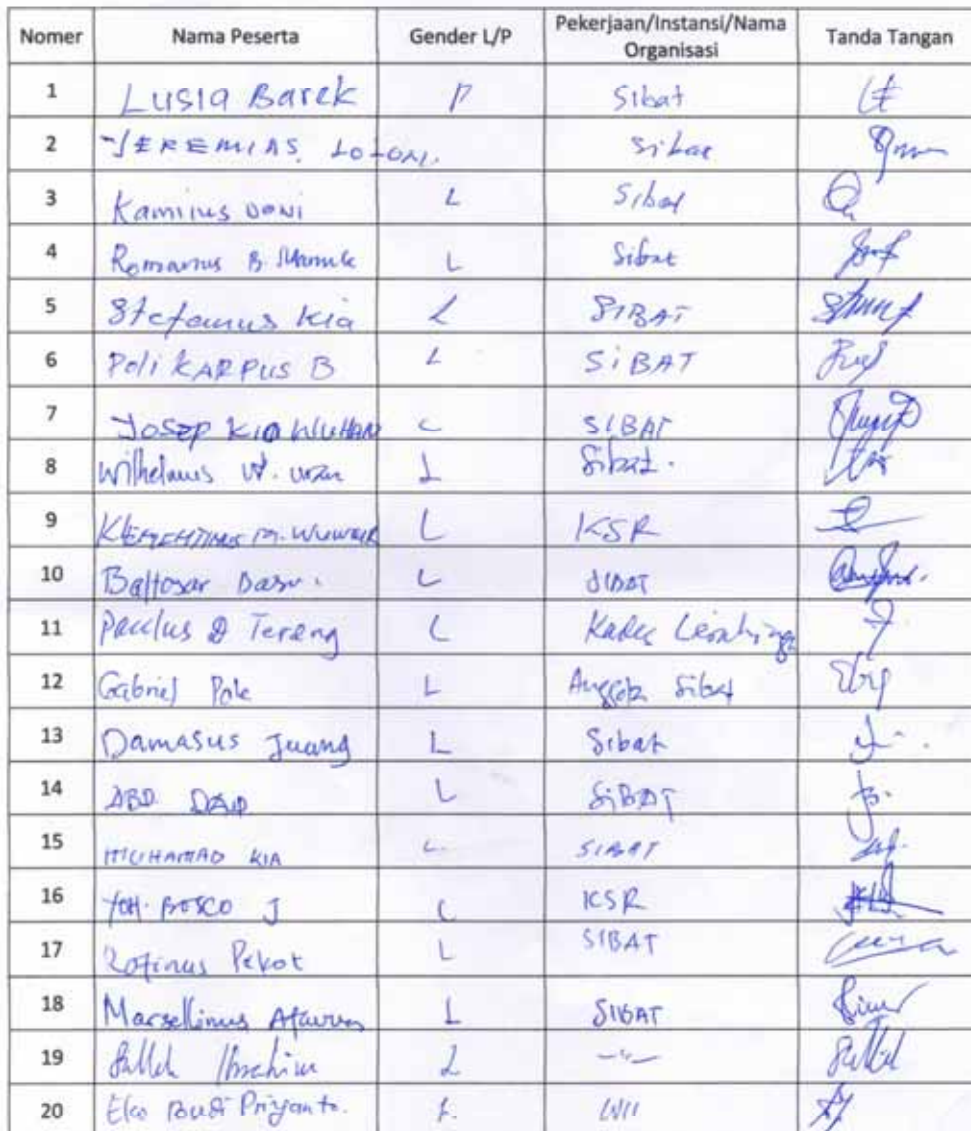 Nomer Nama Peserta Gender L/P Pekerjaan/Instansi/Nama Organisasi Tanda Tangan
1 Lusia Barek P Sibat
2 JEREMIAS Sibat
3 Kamilus DONI L Sibat
4 Romanus B. L Sibat
5 Stefanus Kia L SIBAT
6 Poli KARPUS B L SiBAT
7 Josep KIA WUHAN L SIBAT
8 Wilhelmus W. L Sibat.
9 M. L KSR
10 Baltosar L SIBAT
11 Paulus D Tereng L Kades
12 Gabriel Pole L Anggota Sibat
13 Damasus Juang L Sibat
14 ABD. L SiBAT
15 MUHAMAD KIA L SIBAT
16 YOH. BOSCO J L KSR
17 Rofinus Pekot L SIBAT
18 Marsellinus L SIBAT
19 Ibrahim L -"-
20 Eko Budi Priyanto. L WII